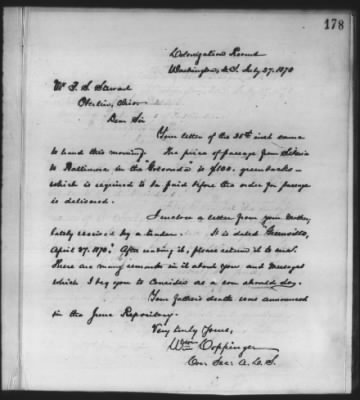 178
Colonization Rooms
Washington, D.C. July 27. 1870
Mr T. S. Steward
Oberlin, Ohio
Dear Sir
Your letter of the 25th inst came
to hand this morning. The price of passage from Liberia
to Baltimore in the "Golconda" is $100. greenbacks –
which is required to be paid before the order for passage
is delivered.
I enclose a letter from your mother,
lately received by a trader. It is dated Greenville,
April 27. 1870. After reading it, please return it to me.
There are many remarks in it about you and messages
which I beg you to consider as a son should do.
Your father's death was announced
in the June Repository.
Very truly Yours,
Wm Coppinger
Cor. Sec: A. C. S.